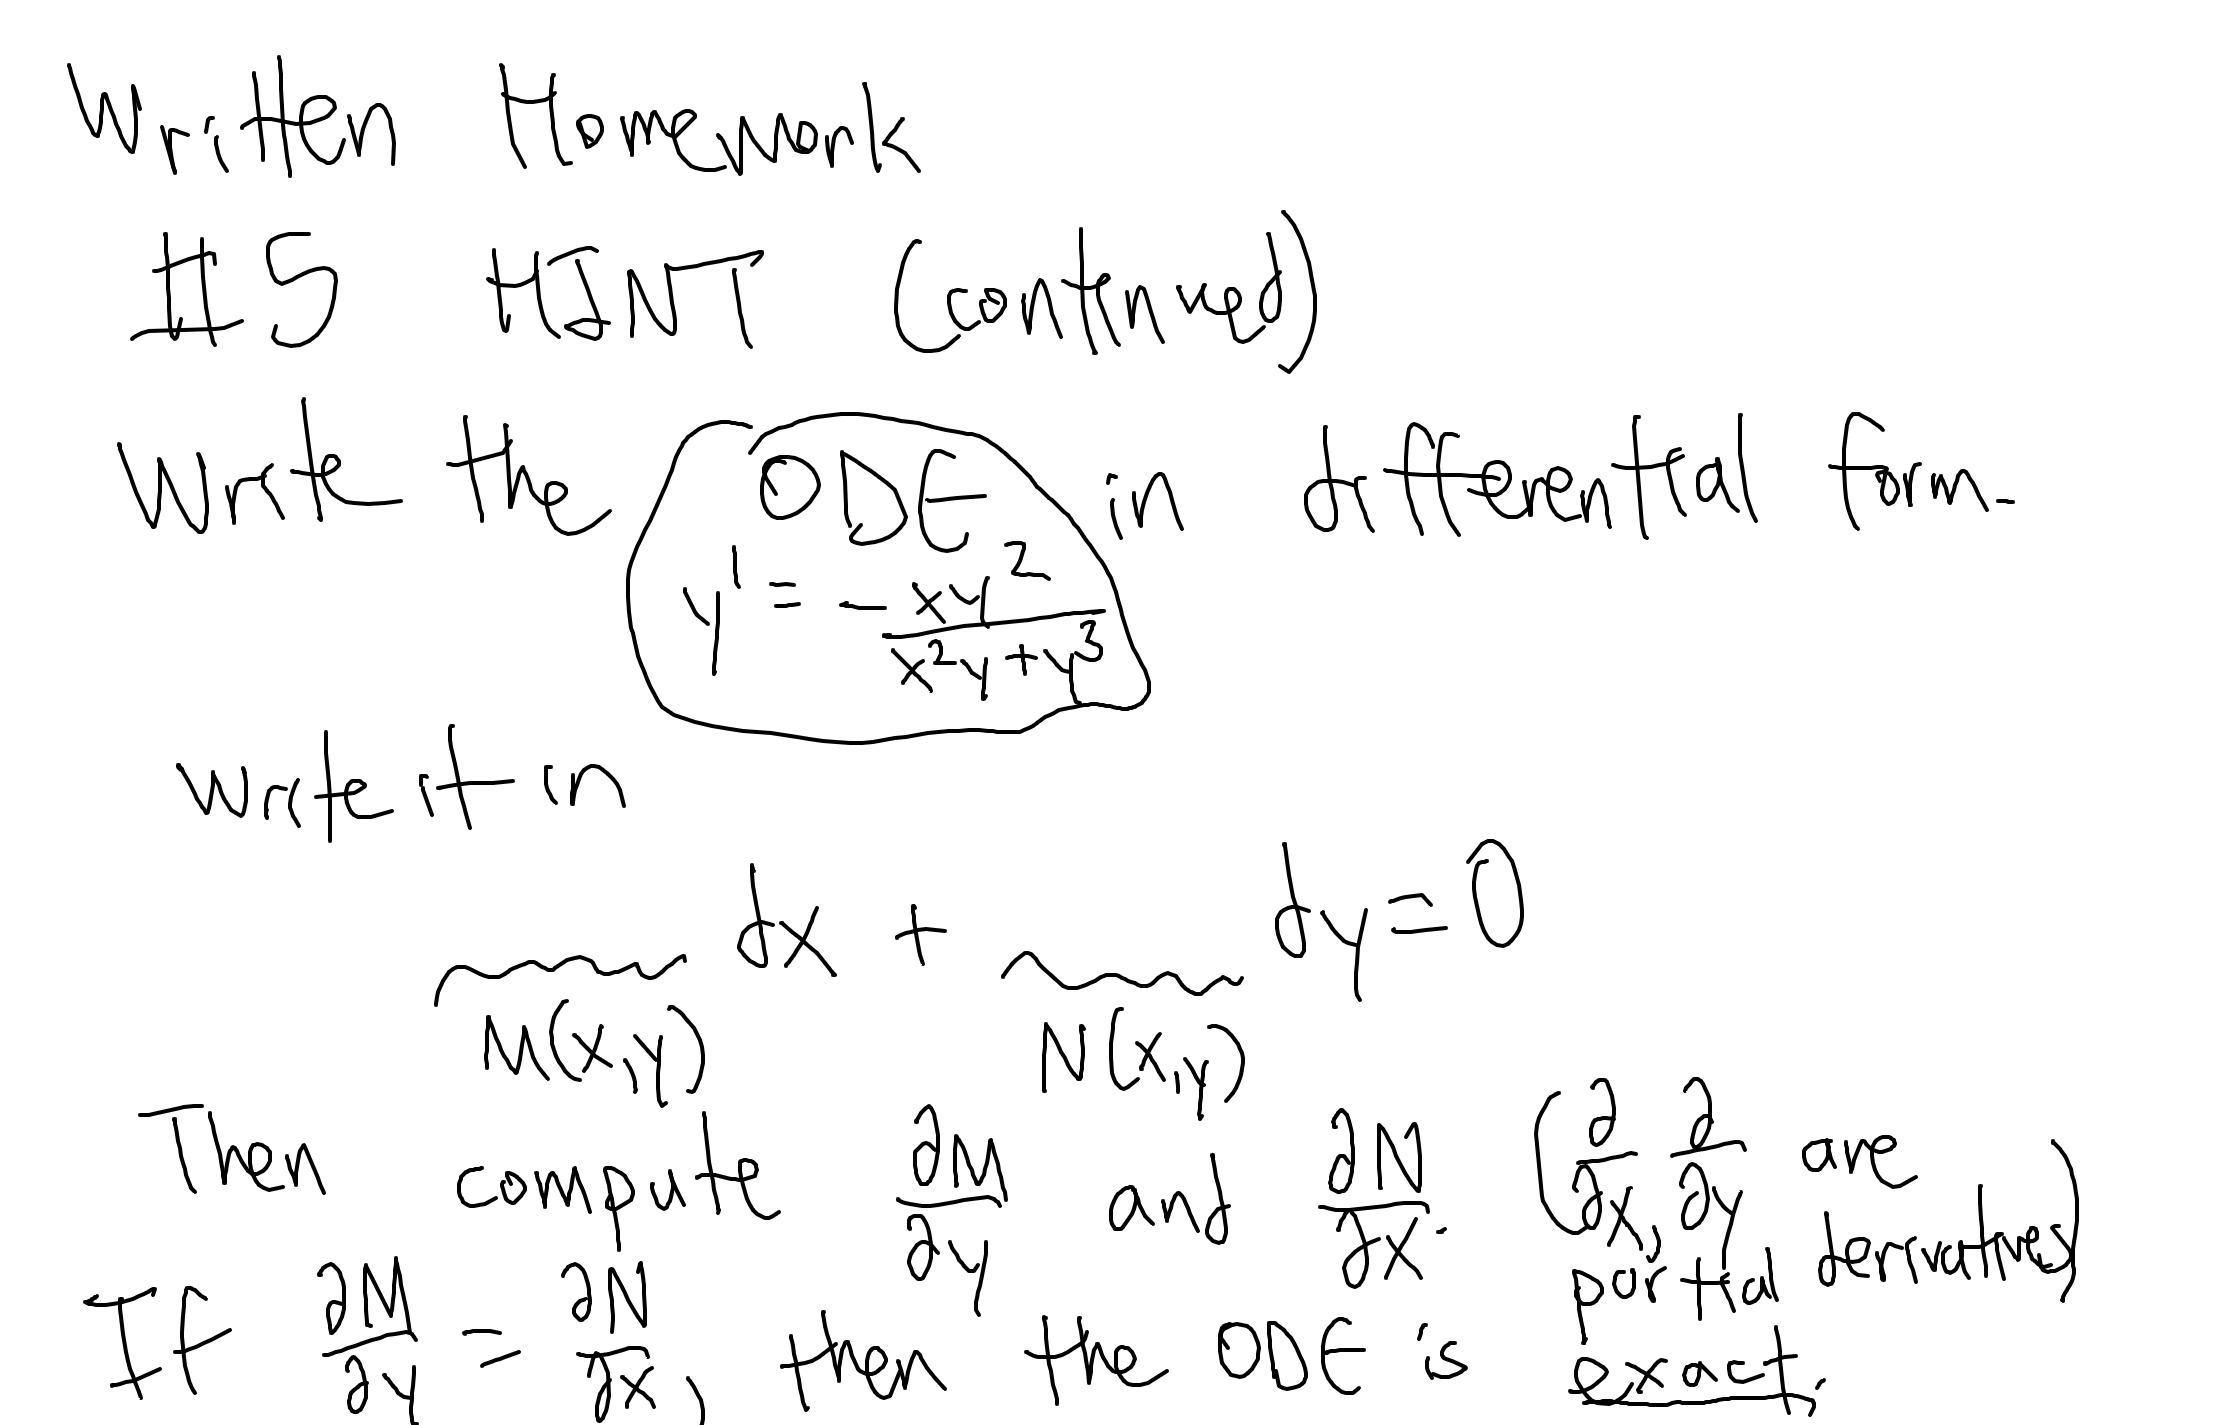 Written Homework
#5 HINT (continued)
Write the ODE in differential form.
y' = - xy²/(x²y+y³)
write it in
dx + dy=0
M(x,y) N(x,y)
Then compute ∂M/∂y and ∂N/∂x. (∂/∂x, ∂/∂y are
partial derivatives)
If ∂M/∂y = ∂N/∂x, then the ODE is exact.